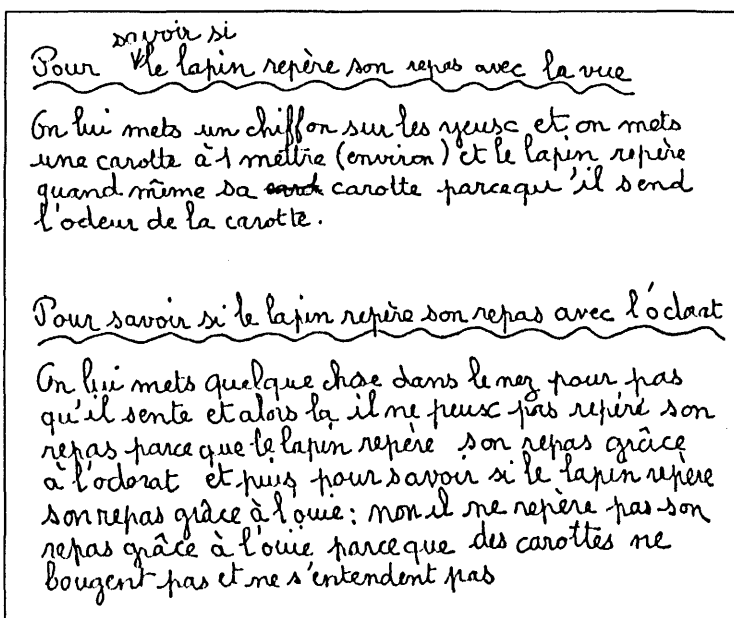 savoir si
Pour le lapin repère son repas avec la vue
On lui mets un chiffon sur les yeux et on mets
une carotte à 1 mettre (environ) et le lapin repère
quand même sa carott carotte parcequ'il send
l'odeur de la carotte.
Pour savoir si le lapin repère son repas avec l'odorat
On lui mets quelque chose dans le nez pour pas
qu'il sente et alors là il ne peux pas repéré son
repas parce que le lapin repère son repas grâce
à l'odorat et puis pour savoir si le lapin repère
son repas grâce à l'ouie : non il ne repère pas son
repas grâce à l'ouie parceque des carottes ne
bougent pas et ne s'entendent pas